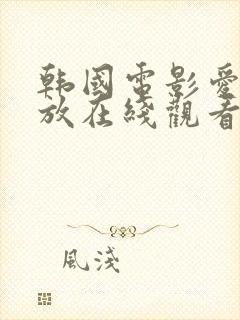 韩國電影愛
放在綫觀看
風淺